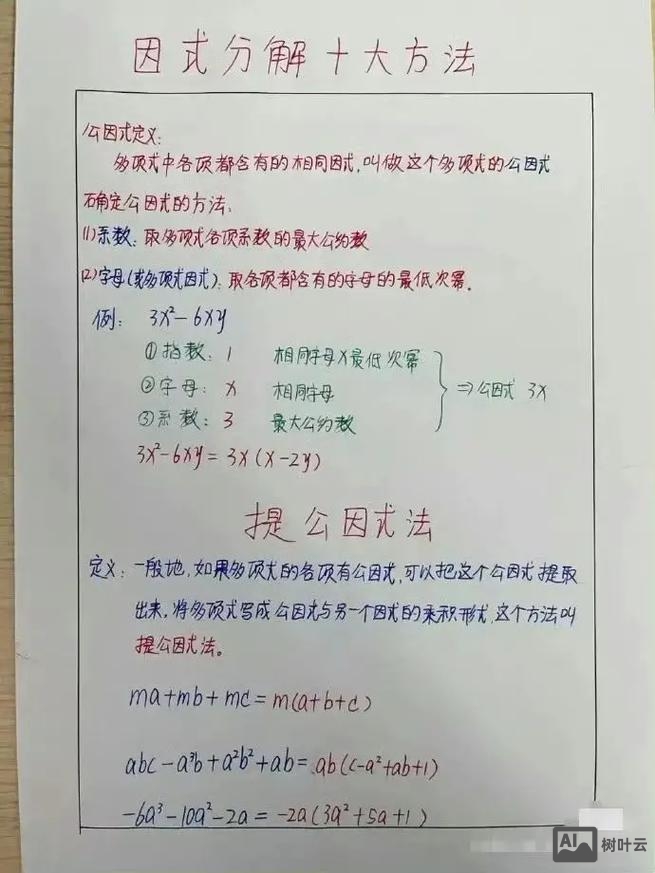 因式分解十大方法
公因式定义:
多项式中各项都含有的相同因式,叫做这个多项式的公因式
确定公因式的方法、
(1)系数:取多项式各项系数的最大公约数
(2)字母(或多项式因式):取各项都含有的字母的最低次幂。
例: 3x²-6xy
①指数: 1 相同字母x最低次幂
②字母: x 相同字母
③系数: 3 最大公约数
⇒公因式 3x
3x²-6xy = 3x(x-2y)
提公因式法
定义:一般地,如果多项式的各项有公因式,可以把这个公因式提取
出来,将多项式写成公因式与另一个因式的乘积形式,这个方法叫
提公因式法。
ma+mb+mc = m(a+b+c)
abc-a³b+a²b²+ab = ab(c-a²+ab+1)
-6a³-10a²-2a = -2a(3a²+5a+1)
AI 树叶云